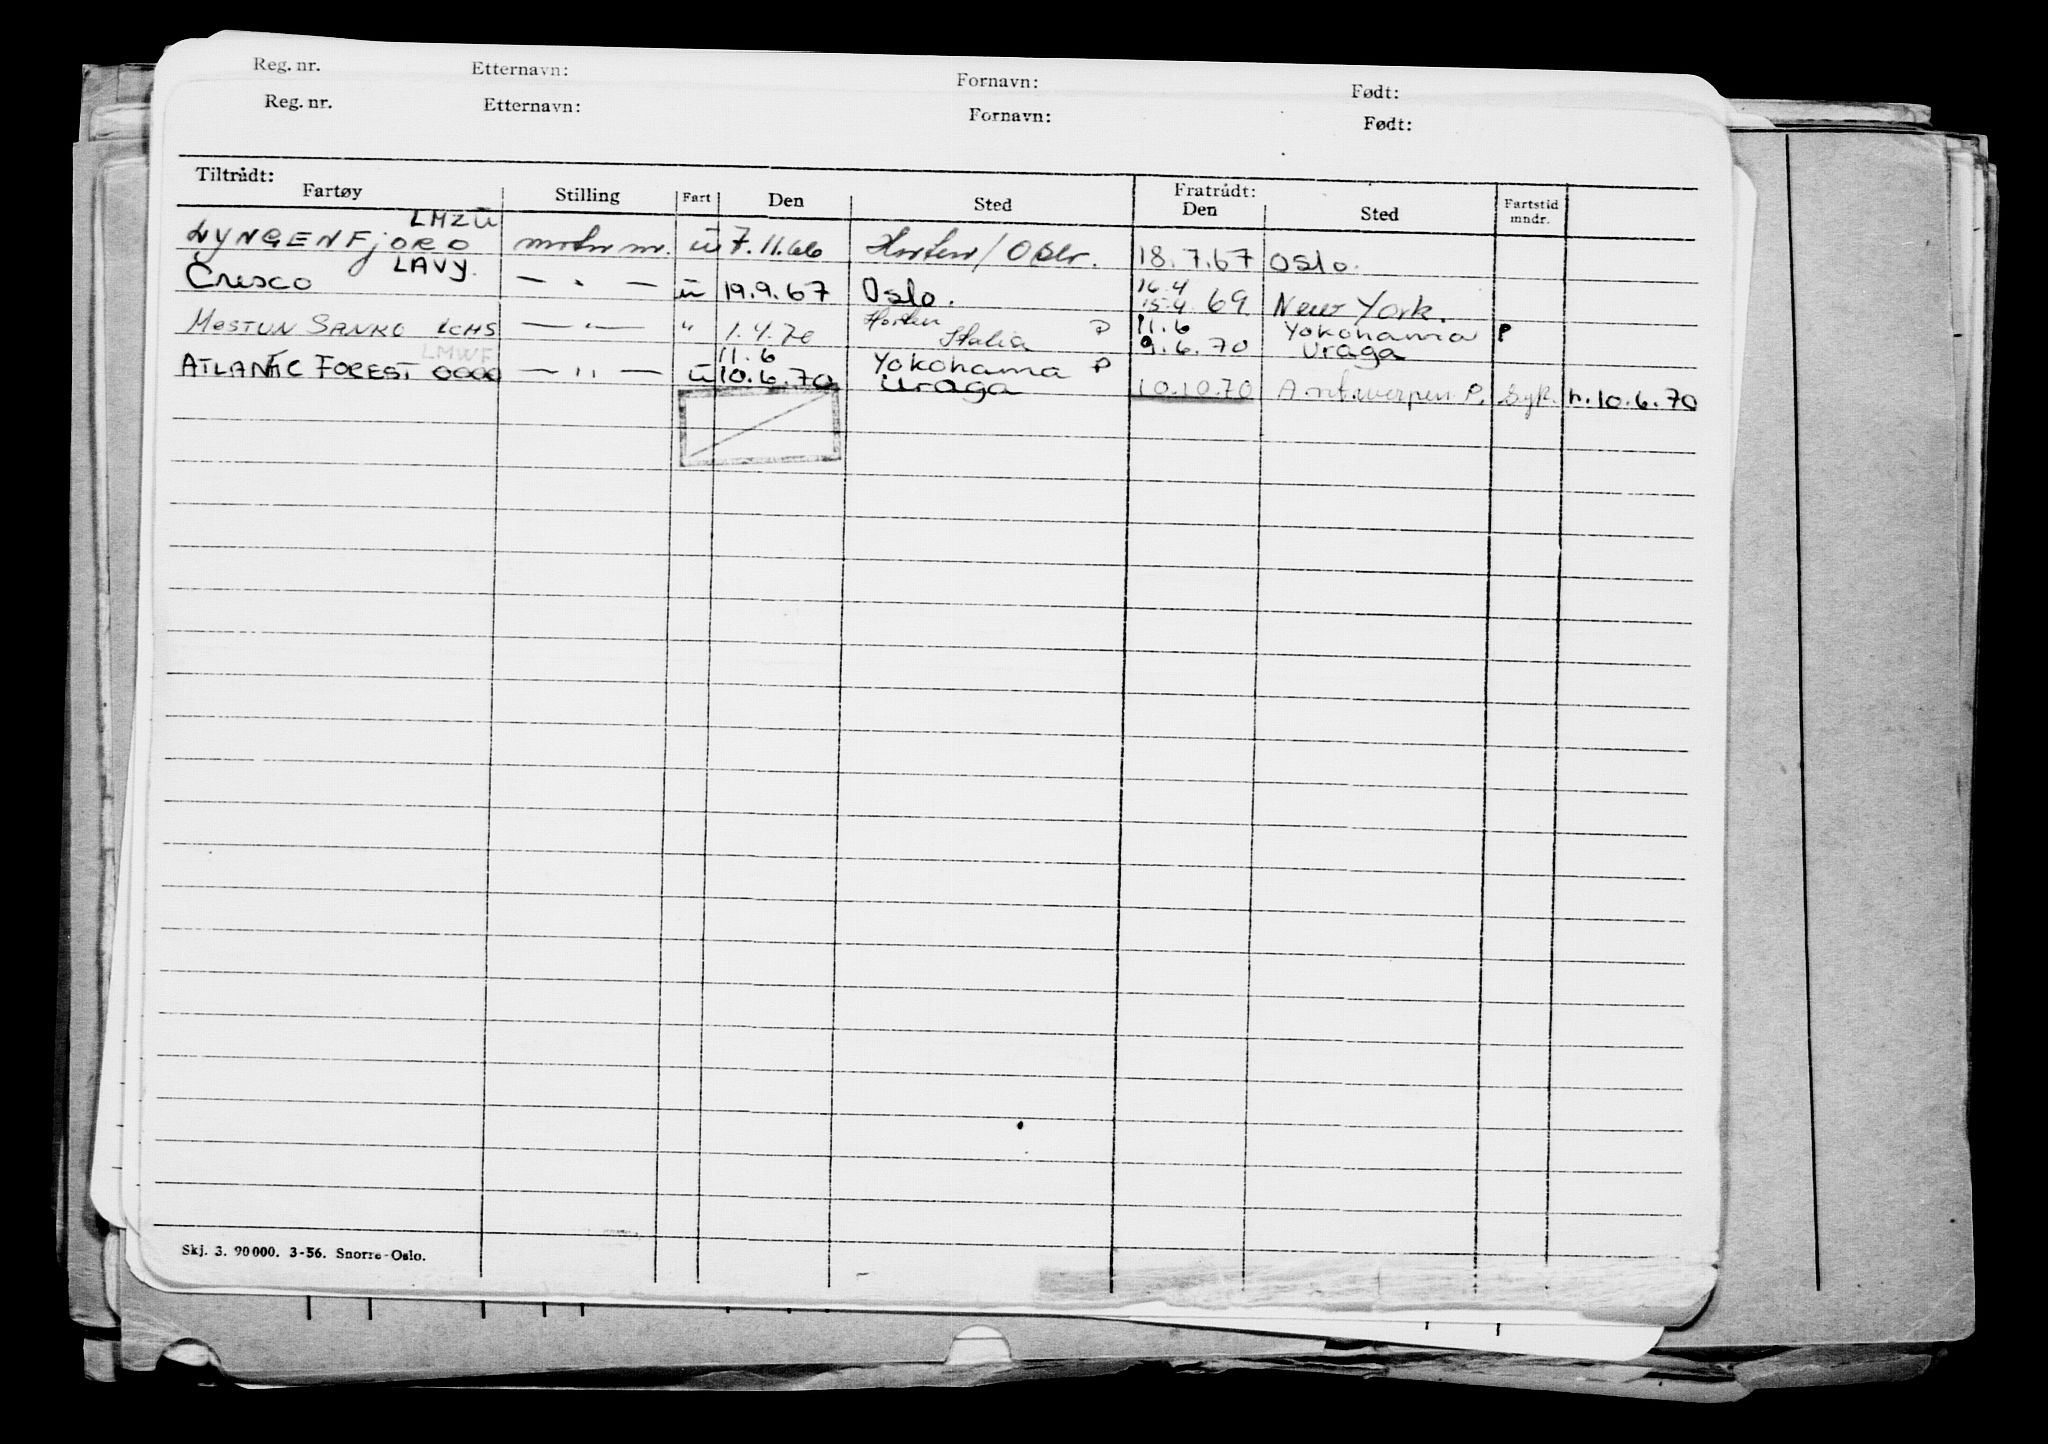 Reg. nr. Etternavn: Fornavn: Født:
Reg. nr. Etternavn: Fornavn: Født:
Tiltrådt: Fratrådt:
Fartøy Stilling Fart Den Sted Den Sted Fartstid mndr.
LMZU
LYNGENFJORD motor m. u 7.11.66 Horten / Oslo. 18.7.67 Oslo.
LAVY. 16.4
Cresco — " — u 19.9.67 Oslo. 15.4 69 New York.
Horten 11.6 Yokohama P
MOSTUN SANKO LCHS — " — " 1.4.70 Italia P 9.6.70 Uraga
LMWF 11.6 Yokohama P
ATLANTIC FOREST — " — u 10.6.70 Uraga 10.10.70 Antwerpen P. Syk. h. 10.6.70
Skj. 3. 90 000. 3-56. Snorre-Oslo.